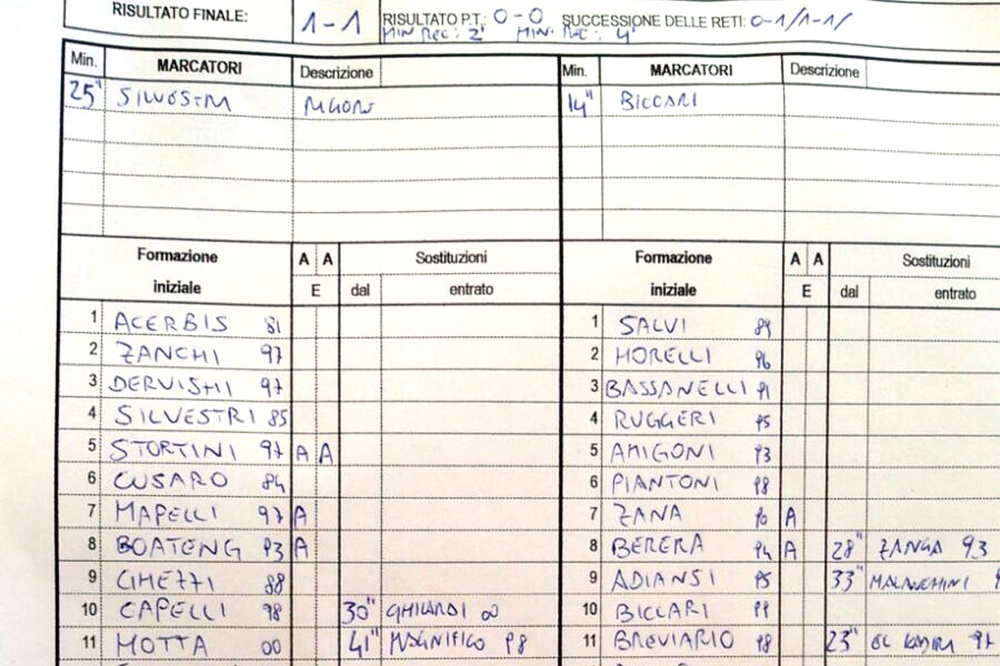 RISULTATO FINALE: 1-1 RISULTATO P.T.: 0-0 SUCCESSIONE DELLE RETI: 0-1/1-1/
MIN REC: 2' MIN. REC: 4'
Min. MARCATORI Descrizione Min. MARCATORI Descrizione
25" 14" BICCARI
Formazione A A Sostituzioni Formazione A A Sostituzioni
iniziale E dal entrato iniziale E dal entrato
1 ACERBIS 81 1 SALVI 89
2 ZANCHI 97 2 MORELLI 96
3 DERVISHI 97 3 BASSANELLI 91
4 SILVESTRI 85 4 RUGGERI 95
5 STORTINI 97 A A 5 AMIGONI 93
6 CUSARO 84 6 PIANTONI 98
7 MAPELLI 97 A 7 ZANA 90 A
8 BOATENG 93 A 8 BERERA 94 A 28" ZANGA 93
9 GHEZZI 88 9 ADIANSI 95 33"
10 CAPELLI 98 30" GHILARDI 00 10 BICCARI 99
11 MOTTA 00 41" MAGNIFICO 98 11 BREVIARIO 98 23" 97